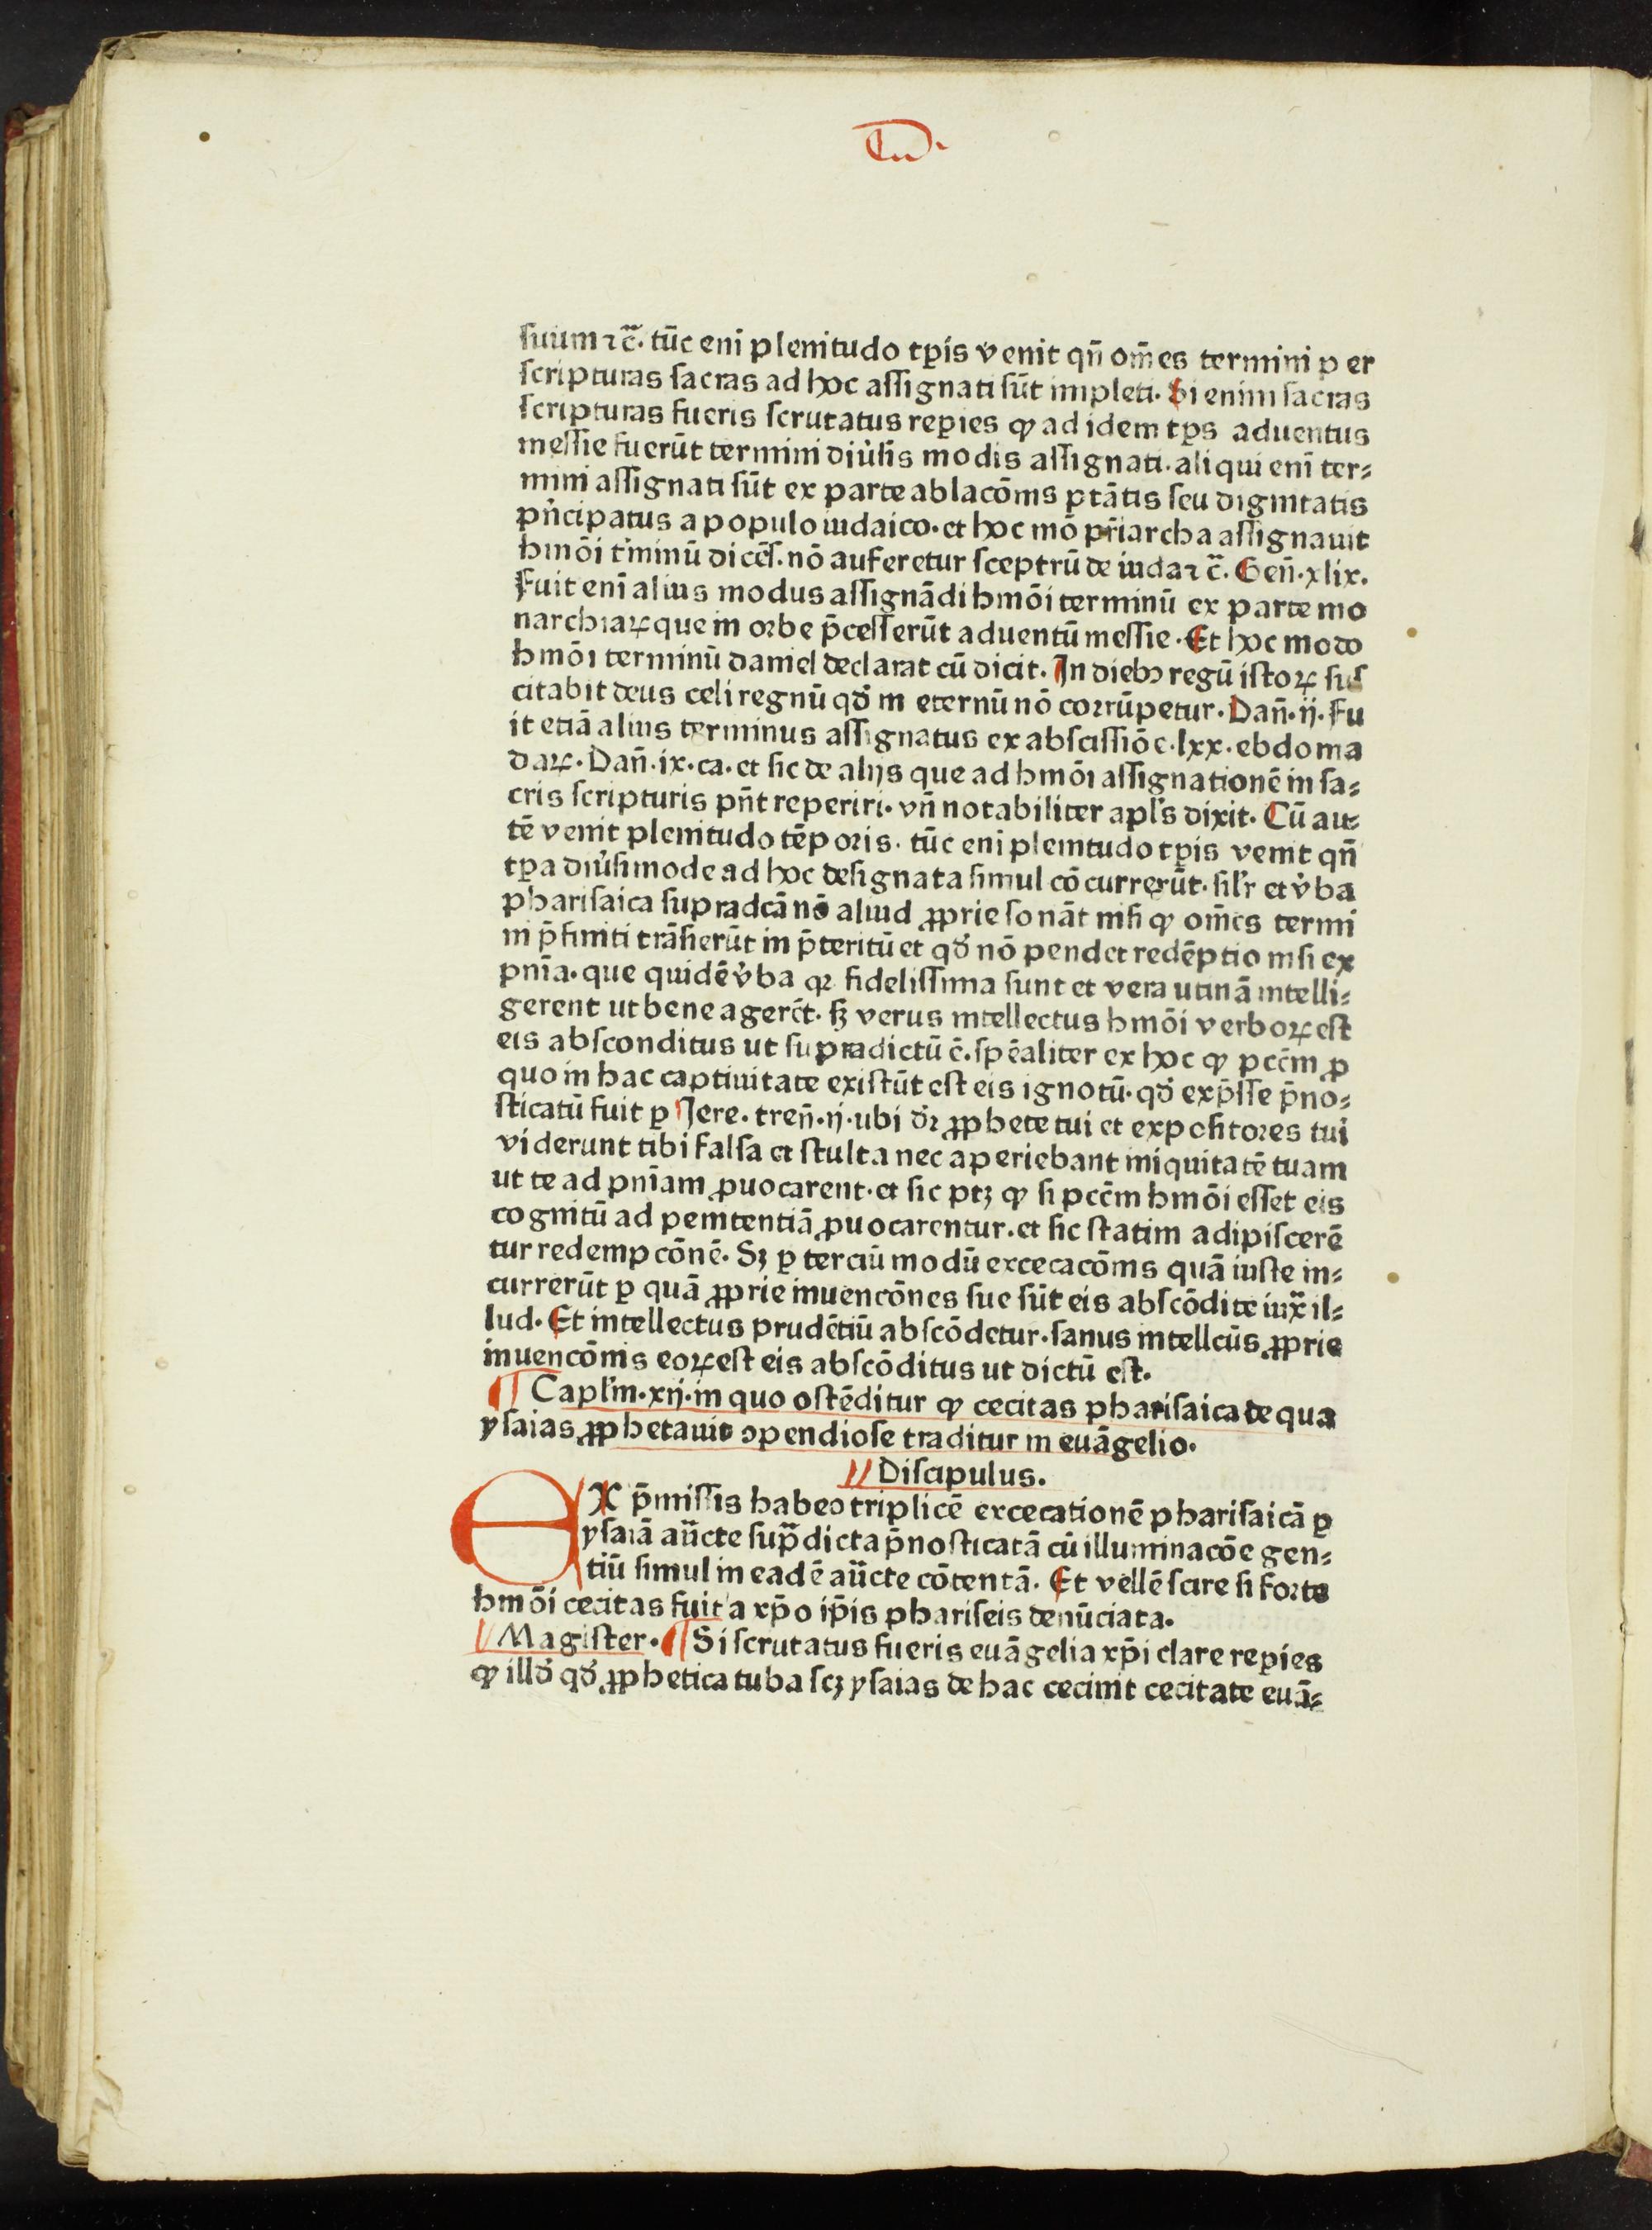 suum ⁊c̄. tūc eni plenitudo tp̄is venit qn̄ om̄es termini per
scripturas sacras ad hoc assignati sūt impleti. Si enim sacras
scripturas fueris scrutatus repies ꝙ ad idem tp̄s aduentus
messie fuerūt termini diu̓sis modis assignati. aliqui enī ter⸗
mini assignati sūt ex parte ablacōnis ptātis seu dignitatis
pn̄cipatus a populo iudaico. et hoc mō pr̄iarcha assignauit
hmōi t̓minū dicēs. nō auferetur sceptrū de iuda ⁊c̄. Gen̄. xlix.
Fuit enī alius modus assignādi hmōi terminū ex parte mo
narchiaꝝ que in orbe p̄cesserūt aduentū messie. Et hoc modo
hmōi terminū daniel declarat cū dicit. In diebꝰ regū istoꝝ sus
citabit deus celi regnū qd̓ in eternū nō corrūpetur. Dan̄. ij. Fu
it etiā alius terminus assignatus ex abscissiōe. lxx. ebdoma
daꝝ. Dan̄. ix. ca. et sic de alijs que ad hmōi assignationē in sa⸗
cris scripturis pn̄t reperiri. vn̄ notabiliter apl̓s dixit. Cū au⸗
tē venit plenitudo tēporis. tūc eni plenitudo tp̄is venit qn̄
tp̄a diu̓simode ad hoc designata simul cōcurrerūt. sil̓r et v̓ba
pharisaica supradcā nō aliud ꝓprie sonāt nisi ꝙ om̄es termi
ni p̄finiti trāsierūt in p̄teritū et qd̓ nō pendet redēptio nisi ex
pn̄ia. que quidē v̓ba qꝛ fidelissima sunt et vera utinā intelli⸗
gerent ut bene agerēt. sꝫ verus intellectus hmōi verboꝝ est
eis absconditus ut supradictū ē. spēaliter ex hoc ꝙ pccm̄ ꝓ
quo in hac captiuitate existūt est eis ignotū. qd̓ exp̄sse p̄no⸗
sticatū fuit ꝑ Jere. tren̄. ij. ubi dr̄ ꝓphete tui et expositores tui
viderunt tibi falsa et stulta nec aperiebant iniquitatē tuam
ut te ad pn̄iam ꝓuocarent. et sic ptꝫ ꝙ si pccm̄ hmōi esset eis
cognitū ad penitentiā ꝓuocarentur. et sic statim adipiscerē
tur redempcōnē. Sꝫ ꝑ terciū modū excecacōnis quā iuste in⸗
currerūt ꝑ quā ꝓprie inuencōnes sue sūt eis abscōdite iux̄ il⸗
lud. Et intellectus prudētiū abscōdetur. sanus intellcūs ꝓprie
inuencōnis eoꝝ est eis abscōditus ut dictū est.
¶ Capl̓m. xij. in quo ostēditur ꝙ cecitas pharisaica de qua
ysaias ꝓphetauit ꝯpendiose traditur in euāgelio.
Discipulus.
EX p̄missis habeo triplicē excecationē pharisaicā ꝑ
ysaiā au̅cte sup̄dicta p̄nosticatā cū illuminacōe gen⸗
tiū simul in eadē au̅cte cōtentā. Et vellē scire si forte
hmōi cecitas fuit a xp̄o ip̄is phariseis denūciata.
Magister. ¶ Si scrutatus fueris euāgelia xp̄i clare repies
ꝙ illd̓ qd̓ ꝓphetica tuba scꝫ ysaias de hac cecinit cecitate euā⸗